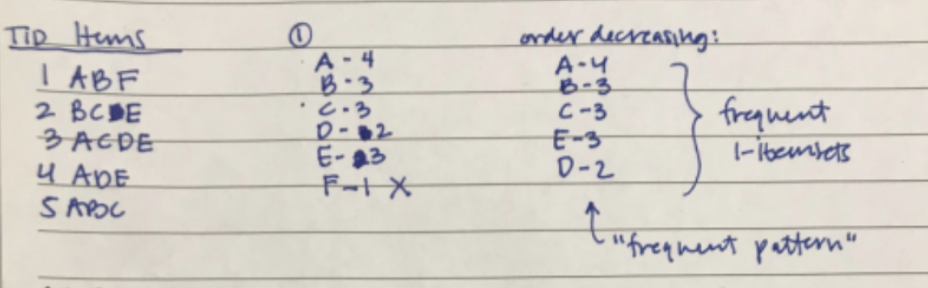 TID Items
1 ABF
2 BCE
3 ACDE
4 ADE
5 ABC
①
A - 4
B - 3
C - 3
D - 2
E - 3
F - 1 X
order decreasing:
A - 4
B - 3
C - 3
E - 3
D - 2
frequent
1-itemsets
"frequent pattern"